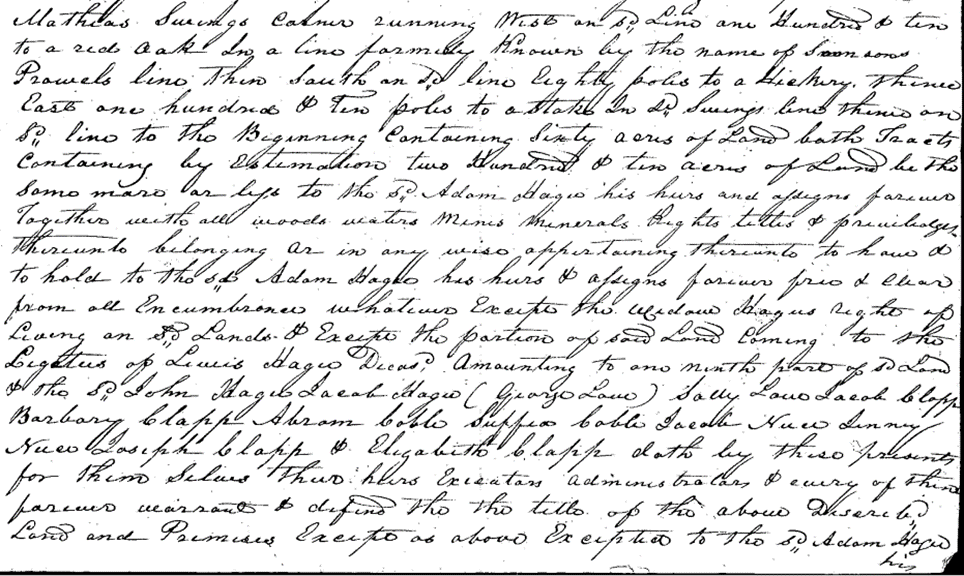 Mathias Swings Corner running West on sd. Line one Hundred & ten
to a red oak In a line formerly Known by the name of
Prowels line then South on sd. line Eighty poles to a Hickery. thence
East one hundred & Ten poles to a Stake In sd. Swings line thence on
sd. line to the Beginning Containing Sixty acres of Land both Tracts
Containing by Estemation two Hundred & ten acres of Land be the
Same more or less to the sd. Adam Hagie his heirs and assigns forever
Together with all woods waters Mines Minerals Rights titles & previledges
thereunto belonging or in any wise appertaining thereunto to have &
to hold to the sd Adam Hagie his heirs & assigns forever free & Clear
from all Encumbrence whatever Except the Widow Hagus right of
Living on sd. Lands & Except the portion of said Land Coming to the
Legetus of Lewis Hagie Decasd. Amounting to one ninth part of sd Land
& the sd. John Hagie Jacob Hagie (George Low) Sally Low Jacob Clapp
Barbary Clapp Abram Coble Suffia Coble Jacob Nuce Linney
Nuce Joseph Clapp & Elizabeth Clapp doth by these presents
for them Selves their heirs Executors administrators & every of them
forever warrant & defend the the title of the above Describd
Land and Premises Except as above Excepted to the sd. Adam Hagie
his